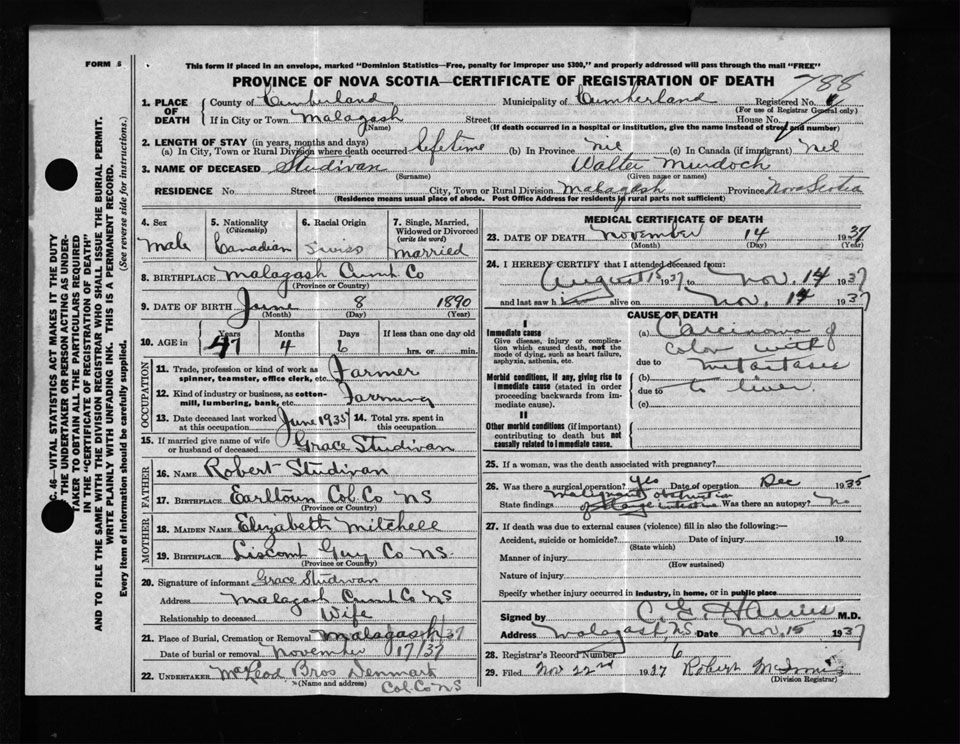 FORM 6
This form if placed in an envelope, marked "Dominion Statistics—Free, penalty for improper use $300," and properly addressed will pass through the mail "FREE"
PROVINCE OF NOVA SCOTIA—CERTIFICATE OF REGISTRATION OF DEATH
788
1. PLACE OF DEATH
County of Cumberland Municipality of Cumberland Registered No.
(For use of Registrar General only)
If in City or Town Malagash Street House No.
(Name) (If death occurred in a hospital or institution, give the name instead of street and number)
2. LENGTH OF STAY (in years, months and days)
(a) In City, Town or Rural Division where death occurred lifetime (b) In Province nil (c) In Canada (if immigrant) nil
3. NAME OF DECEASED Studivan Walter Murdoch
(Surname) (Given name or names)
RESIDENCE No. Street City, Town or Rural Division Malagash Province Nova Scotia
(Residence means usual place of abode. Post Office Address for residents in rural parts not sufficient)
4. Sex Male
5. Nationality (Citizenship) Canadian
6. Racial Origin Swiss
7. Single, Married, Widowed or Divorced (write the word) Married
8. BIRTHPLACE Malagash Cumb Co
(Province or Country)
9. DATE OF BIRTH June 8 1890
(Month) (Day) (Year)
10. AGE in Years 47 Months 4 Days 6 If less than one day old
hrs. or min.
OCCUPATION
11. Trade, profession or kind of work as spinner, teamster, office clerk, etc. Farmer
12. Kind of industry or business, as cotton-mill, lumbering, bank, etc. Farming
13. Date deceased last worked at this occupation June 1935
14. Total yrs. spent in this occupation
15. If married give name of wife or husband of deceased Grace Studivan
FATHER
16. NAME Robert Studivan
17. BIRTHPLACE Earltown Col. Co NS
(Province or Country)
MOTHER
18. MAIDEN NAME Elizabeth Mitchell
19. BIRTHPLACE Liscomb Guy Co NS.
(Province or Country)
20. Signature of informant Grace Studivan
Address Malagash Cumb Co NS
Relationship to deceased Wife
21. Place of Burial, Cremation or Removal Malagash
Date of burial or removal November 17/37
22. UNDERTAKER McLeod Bros Denmark
(Name and address) Col. Co NS
MEDICAL CERTIFICATE OF DEATH
23. DATE OF DEATH November 14 1937
(Month) (Day) (Year)
24. I HEREBY CERTIFY that I attended deceased from:
August 15 1937 to Nov. 14 1937
and last saw him alive on Nov. 14 1937
CAUSE OF DEATH
I
Immediate cause
Give disease, injury or complication which caused death, not the mode of dying, such as heart failure, asphyxia, asthenia, etc.
(a) Carcinoma of
Colon with
due to metastases
Morbid conditions, if any, giving rise to immediate cause (stated in order proceeding backwards from immediate cause).
(b) to liver.
due to
(c)
II
Other morbid conditions (if important) contributing to death but not causally related to immediate cause.
25. If a woman, was the death associated with pregnancy?
26. Was there a surgical operation? Yes Date of operation Dec 1935
State findings malignant obstruction of large intestine Was there an autopsy? No
27. If death was due to external causes (violence) fill in also the following:
Accident, suicide or homicide? Date of injury 19
(State which)
Manner of injury
(How sustained)
Nature of injury
Specify whether injury occurred in industry, in home, or in public place
Signed by M.D.
Address Malagash N.S. Date Nov. 15 1937
28. Registrar's Record Number 6
29. Filed Nov 22nd 1937 Robert McInnis
(Division Registrar)
C. 46—VITAL STATISTICS ACT MAKES IT THE DUTY
OF THE UNDERTAKER OR PERSON ACTING AS UNDER-
TAKER TO OBTAIN ALL THE PARTICULARS REQUIRED
IN THE "CERTIFICATE OF REGISTRATION OF DEATH"
AND TO FILE THE SAME WITH THE DIVISION REGISTRAR WHO SHALL ISSUE THE BURIAL PERMIT.
WRITE PLAINLY WITH UNFADING INK. THIS IS A PERMANENT RECORD.
Every item of information should be carefully supplied. (See reverse side for instructions.)